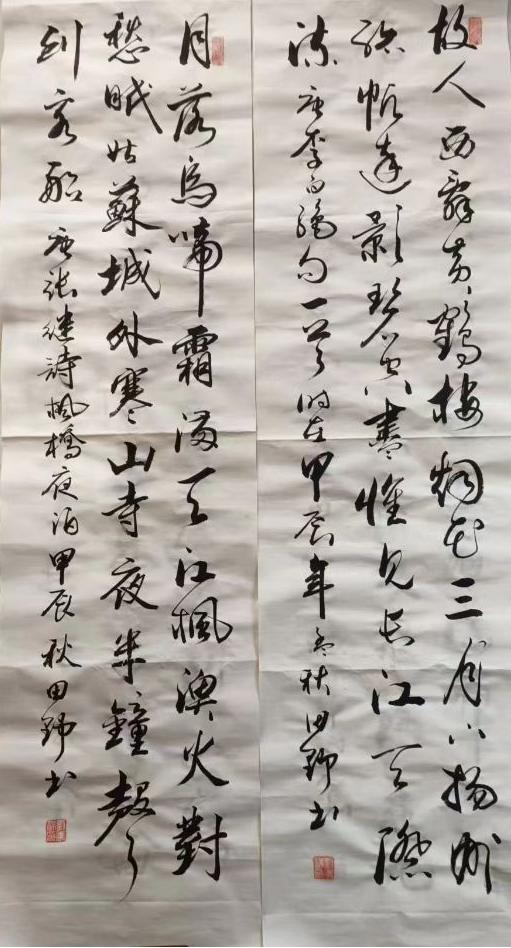 故人西辭黄鶴樓烟花三月下揚州
孤帆遠影碧空盡惟見長江天際
流 唐李白絶句一首 时在甲辰年秋田野书
月落烏啼霜滿天江楓漁火對
愁眠姑蘇城外寒山寺夜半鐘聲
到客船 唐张继詩楓橋夜泊甲辰秋田野书